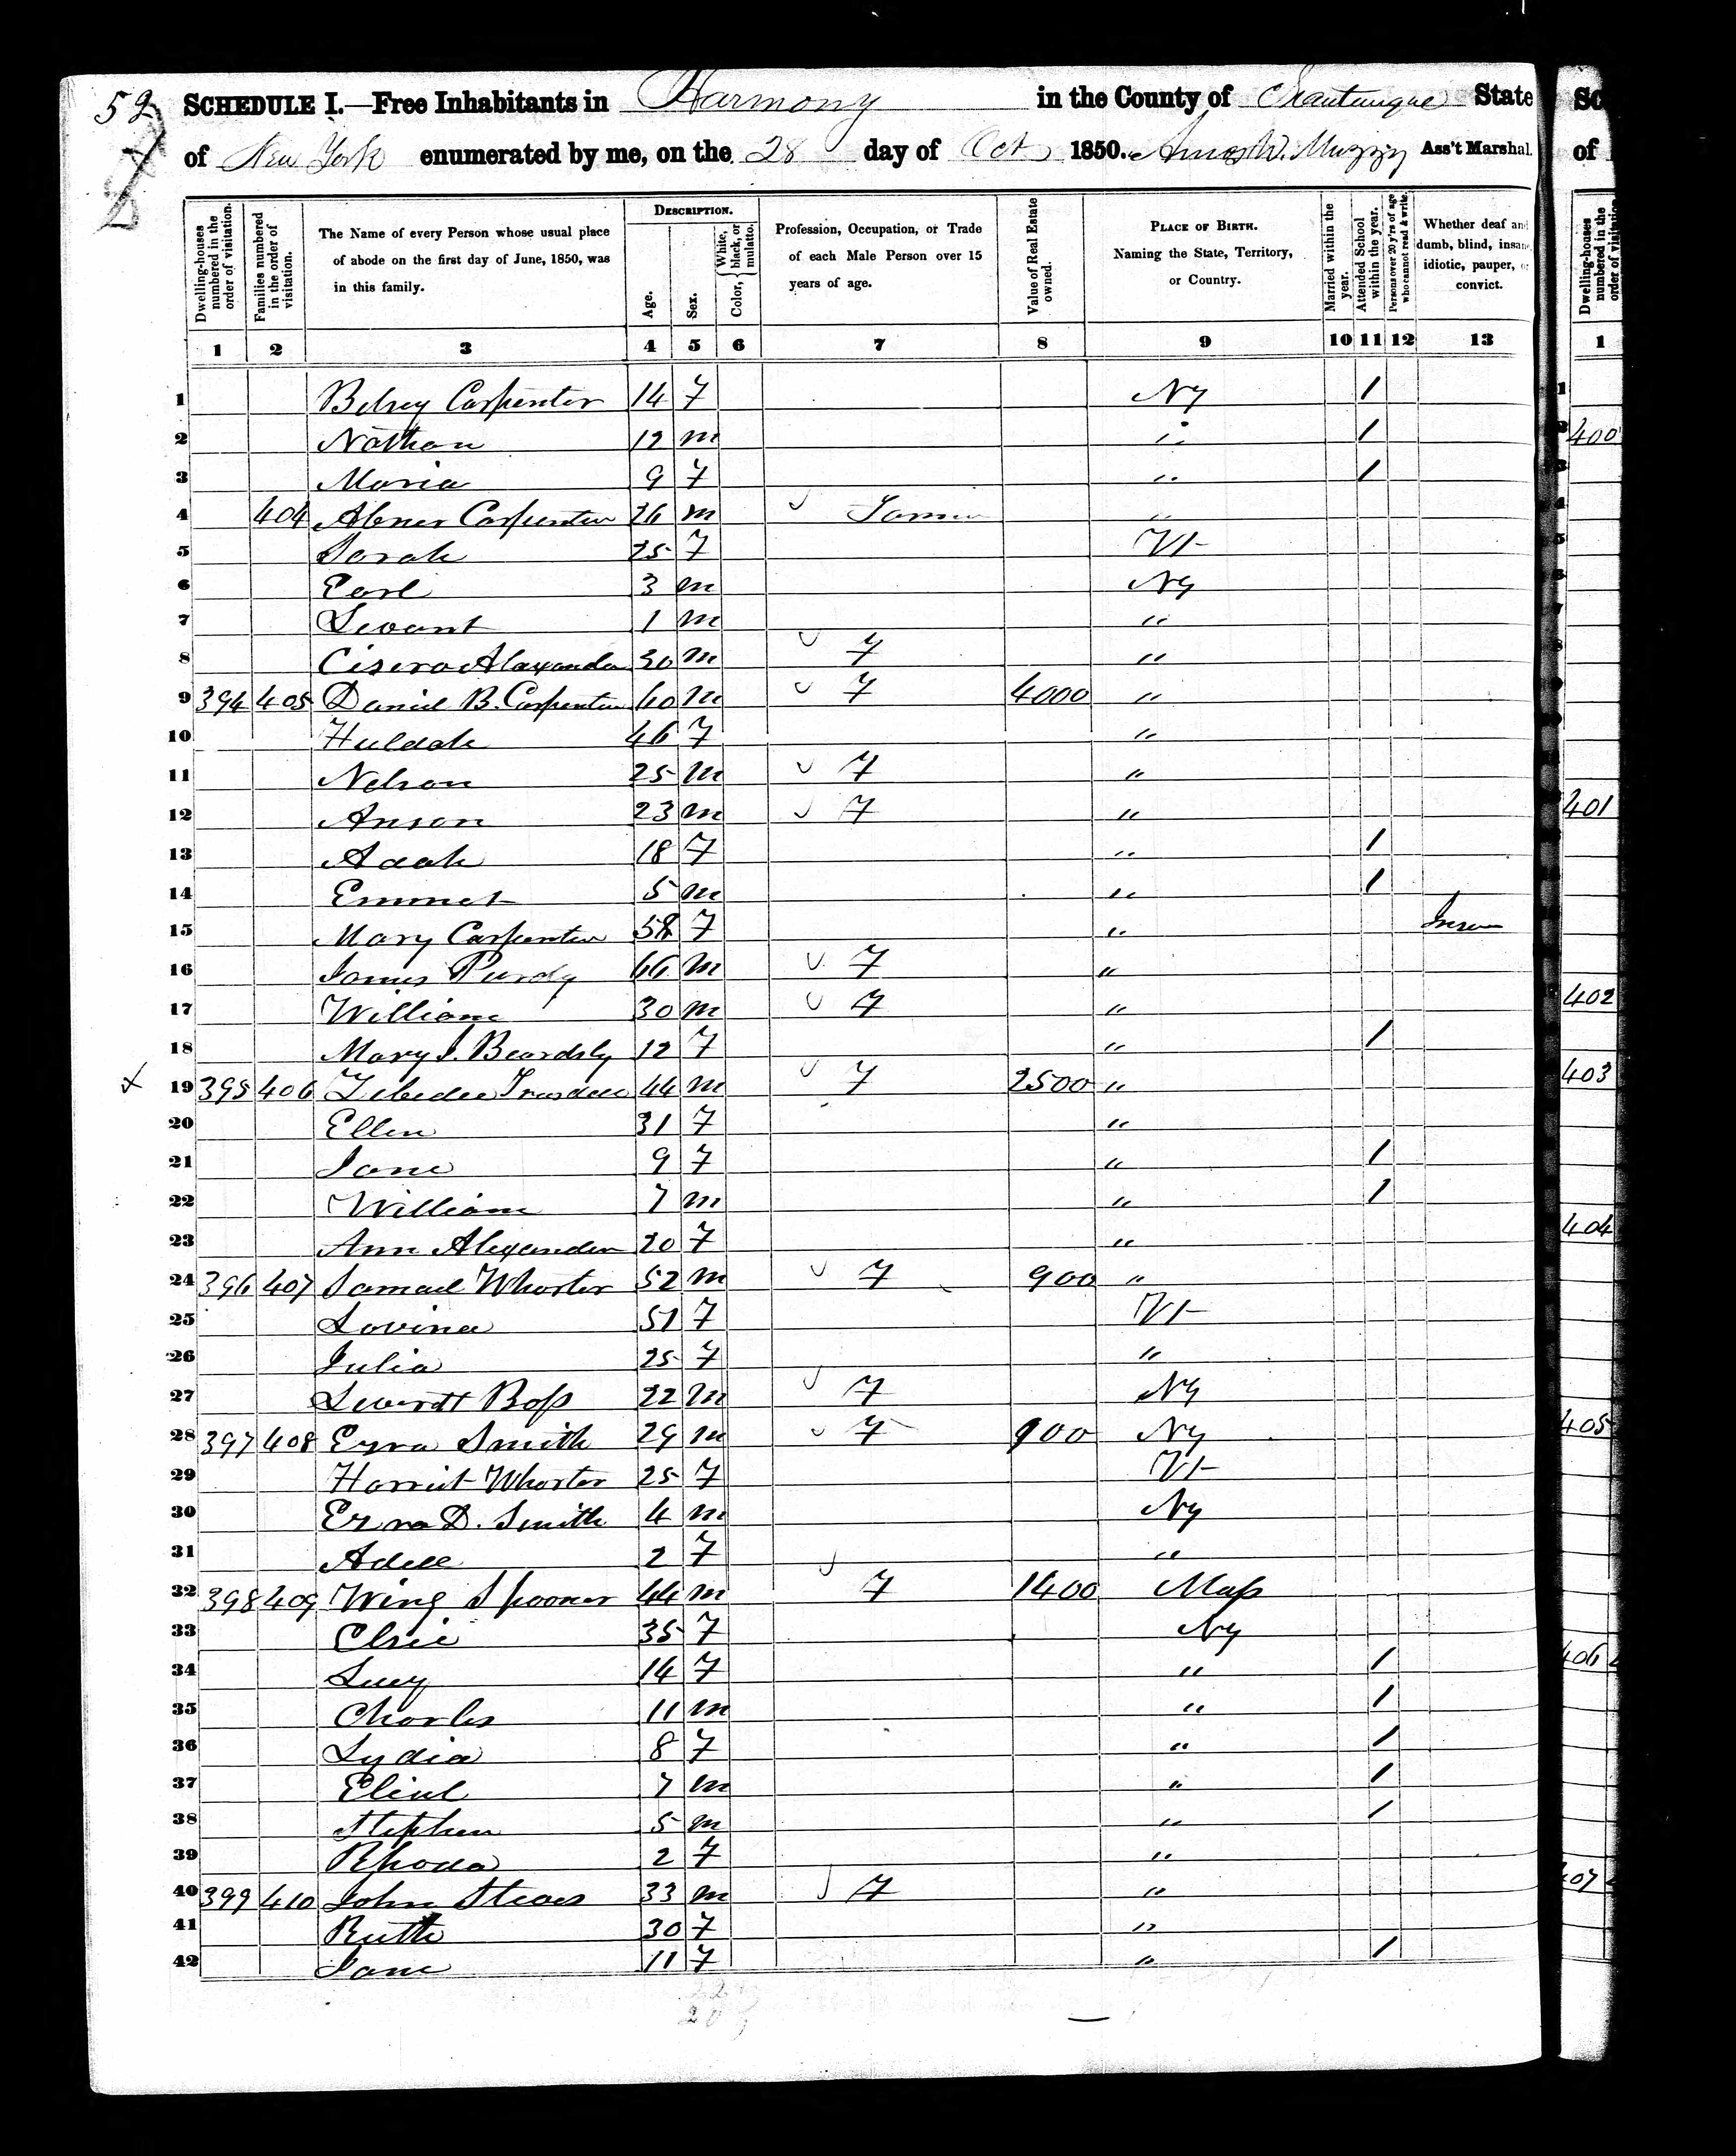 52
SCHEDULE I.—Free Inhabitants in Harmony in the County of Chautauque State
of New York enumerated by me, on the 28 day of Oct 1850. Amos W. Muzzy Ass't Marshal.
Dwelling-houses numbered in the order of visitation. Families numbered in the order of visitation. The Name of every Person whose usual place of abode on the first day of June, 1850, was in this family. DESCRIPTION. Age. Sex. Color, { White, black, or mulatto. Profession, Occupation, or Trade of each Male Person over 15 years of age. Value of Real Estate owned. PLACE OF BIRTH. Naming the State, Territory, or Country. Married within the year. Attended School within the year. Persons over 20 y'rs of age who cannot read & write. Whether deaf and dumb, blind, insane, idiotic, pauper, or convict.
1 2 3 4 5 6 7 8 9 10 11 12 13
1 Betsey Carpenter 14 F NY /
2 Nathan 12 m " /
3 Maria 9 F " /
4 404 Abner Carpenter 36 m Farmer "
5 Sarah 25 F Vt
6 Earl 3 m NY
7 Levant 1 m "
8 Cisero Alaxander 30 m F "
9 394 405 Daniel B. Carpenter 60 m F 4000 "
10 Huldah 46 F "
11 Nelson 25 m F "
12 Anson 23 m F "
13 Adah 18 F " /
14 Emmet 5 m " /
15 Mary Carpenter 58 F "
16 James Purdy 66 m F "
17 William 30 m F "
18 Mary J. Beardsly 12 F " /
19 395 406 Zebedee Trusdell 44 m F 2500 "
20 Ellen 31 F "
21 Jane 9 F " /
22 William 7 m " /
23 Ann Alexander 20 F "
24 396 407 Samuel Whorter 52 m F 900 "
25 Lovina 51 F Vt
26 Julia 25 F "
27 Leverett Boss 22 m F NY
28 397 408 Ezra Smith 29 m F 900 NY
29 Harriet Whorter 25 F Vt
30 Ezra D. Smith 4 m NY
31 Adell 2 F "
32 398 409 Wing Spooner 44 m F 1400 Mass
33 Elsie 35 F NY
34 Lucy 14 F " /
35 Charles 11 m " /
36 Lydia 8 F " /
37 7 m " /
38 Stephen 5 m " /
39 Rhoda 2 F "
40 399 410 John 33 m F "
41 Ruth 30 F "
42 Jane 11 F " /
400
401
402
403
404
405
406
407